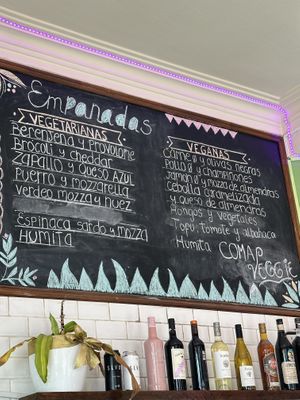 Empanadas
VEGETARIANAS
Berenjena y provolone
Brocoli y cheddar
ZAPALLO y QUESO AZUL
Puerro y mozzarella
verdeo mozza y nuez
Espinaca sardo y mozza
HUMITA
VEGANAS
Carne y olivas negras
Pollo y champiñones
Jamon y moza de almendras
Cebolla caramelizada
y queso de almendras
Hongos y vegetales
Tofu, tomate y albahaca
Humita
COMAP
VEGGIE